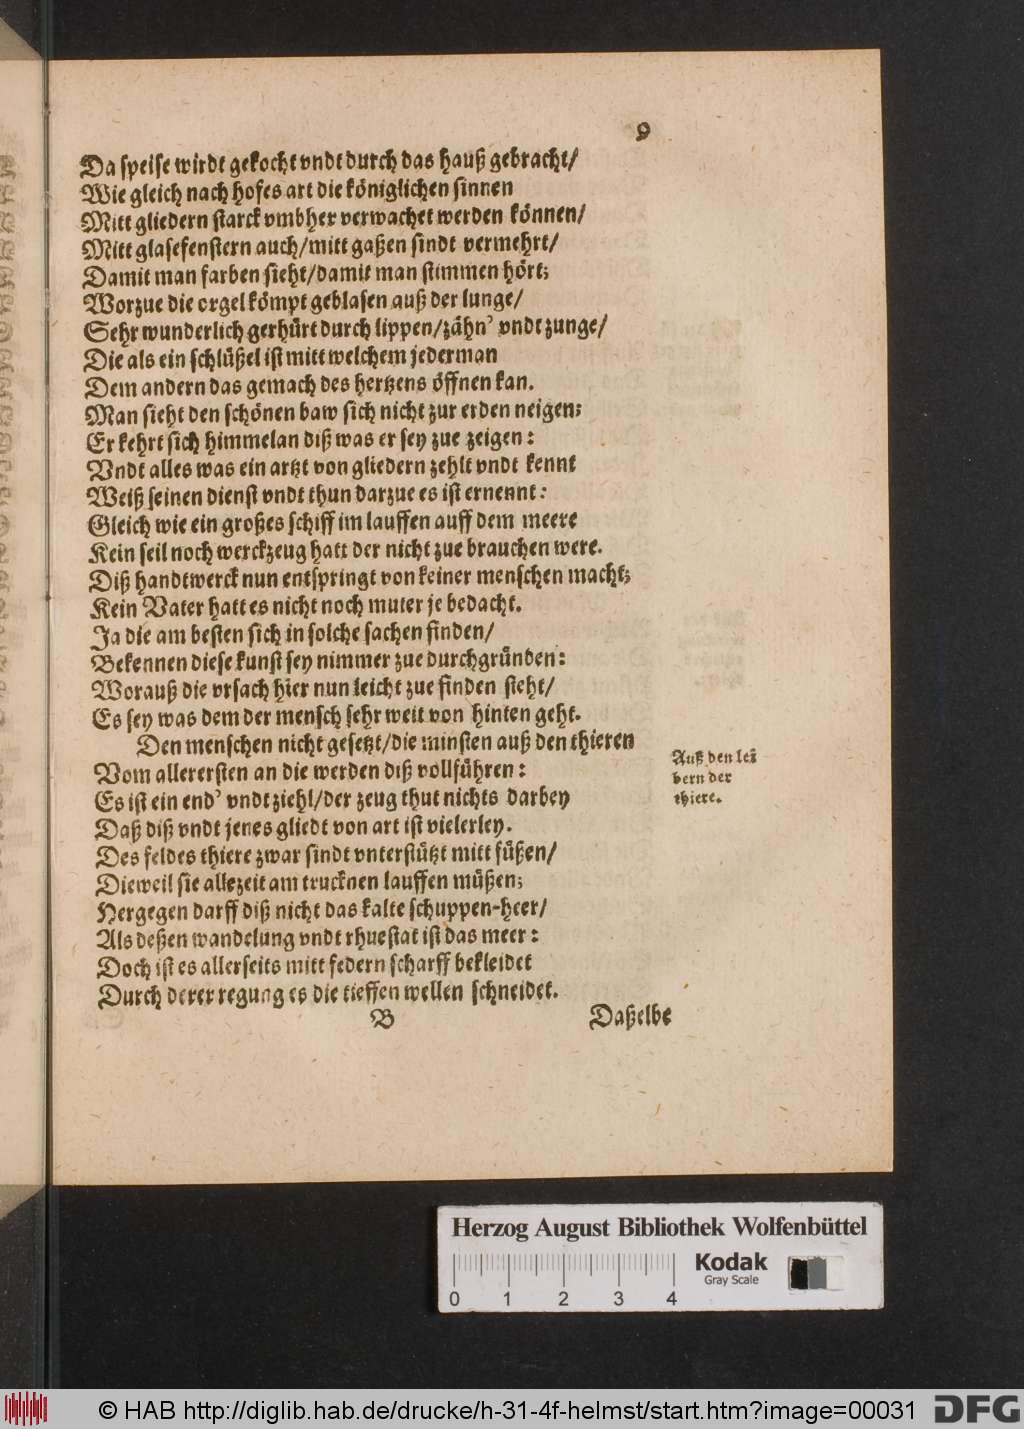 9
Da speise wirdt gekocht vndt durch das hauß gebracht/
Wie gleich nach hofes art die königlichen sinnen
Mitt gliedern starck vmbher verwachet werden können/
Mitt glasefenstern auch/mitt gaßen sindt vermehrt/
Damit man farben sieht/damit man stimmen hört;
Worzue die orgel kömpt geblasen auß der lunge/
Sehr wunderlich gerhürt durch lippen/zähn' vndt zunge/
Die als ein schlüßel ist mitt welchem jederman
Dem andern das gemach des hertzens öffnen kan.
Man sieht den schönen baw sich nicht zur erden neigen;
Er kehrt sich himmelan diß was er sey zue zeigen:
Vndt alles was ein artzt von gliedern zehlt vndt kennt
Weiß seinen dienst vndt thun darzue es ist ernennt:
Gleich wie ein großes schiff im lauffen auff dem meere
Kein seil noch werckzeug hatt der nicht zue brauchen were.
Diß handtwerck nun entspringt von keiner menschen macht;
Kein Vater hatt es nicht noch muter je bedacht.
Ja die am besten sich in solche sachen finden/
Bekennen diese kunst sey nimmer zue durchgründen:
Worauß die vrsach hier nun leicht zue finden steht/
Es sey was dem der mensch sehr weit von hinten geht.
Den menschen nicht gesetzt/die minsten auß den thieren
Vom allerersten an die werden diß vollführen:
Es ist ein end' vndt ziehl/der zeug thut nichts darbey
Daß diß vndt jenes gliedt von art ist vielerley.
Des feldes thiere zwar sindt vnterstützt mitt füßen/
Dieweil sie allezeit am trucknen lauffen müßen;
Hergegen darff diß nicht das kalte schuppen-heer/
Als deßen wandelung vndt rhuestat ist das meer:
Doch ist es allerseits mitt federn scharff bekleidet
Durch derer regung es die tieffen wellen schneidet.
B Daßelbe
Auß den lei
bern der
thiere.
Herzog August Bibliothek Wolfenbüttel
Kodak
Gray Scale
0 1 2 3 4
© HAB http://diglib.hab.de/drucke/h-31-4f-helmst/start.htm?image=00031
DFG